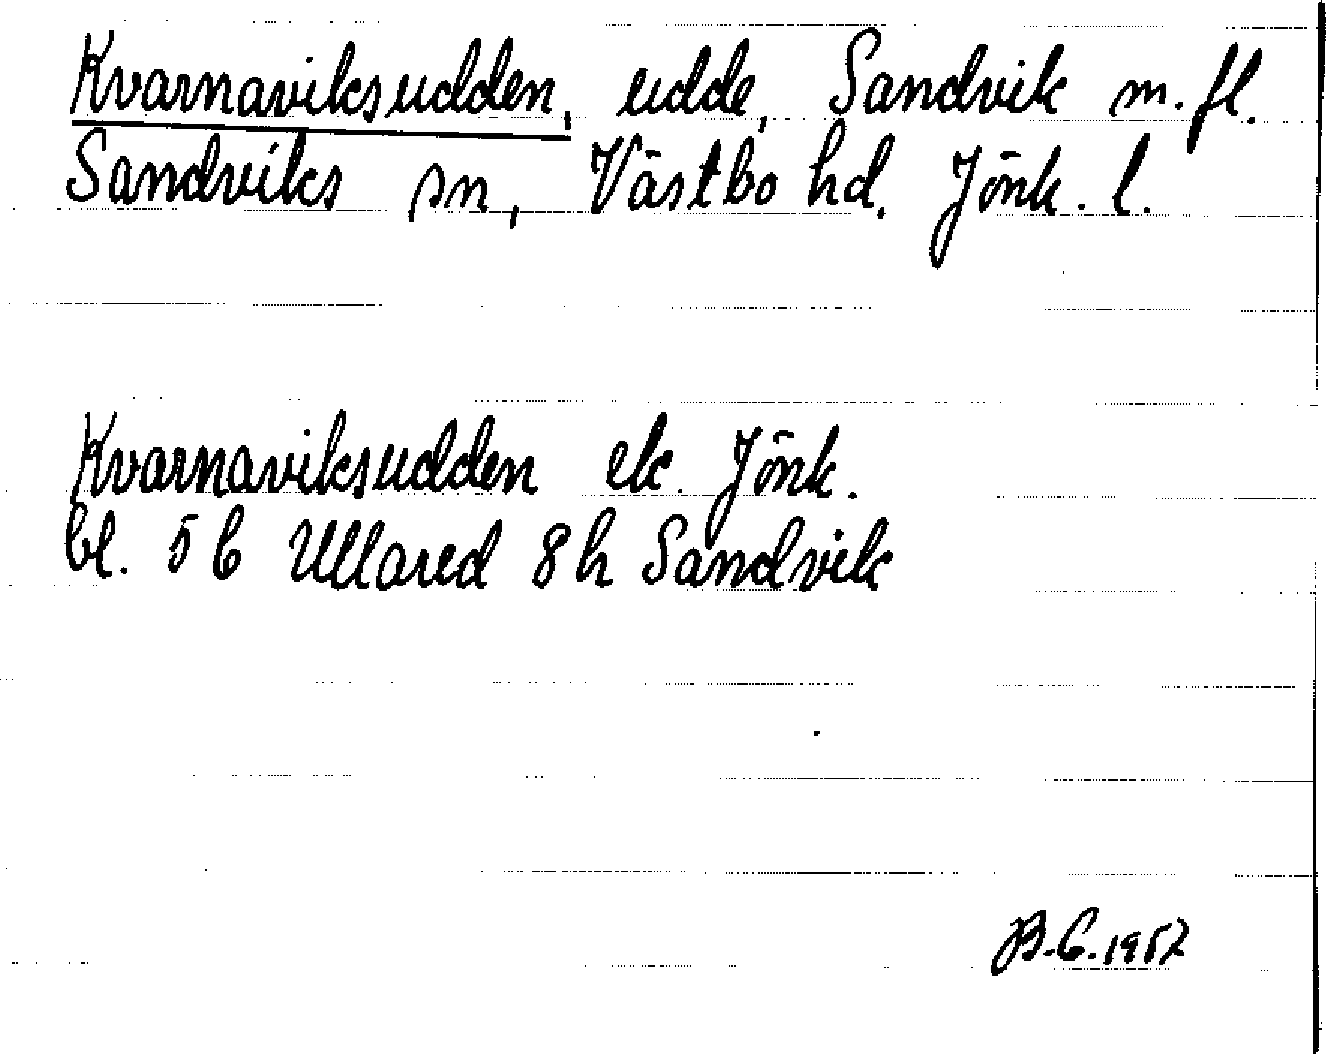 Kvarnaviksudden, udde, Sandvik m. fl.
Sandviks sn, Västbo hd, Jönk. l.
Kvarnaviksudden ek. Jönk.
bl. 5 b Ullared 8 h Sandvik
B. C. 1957